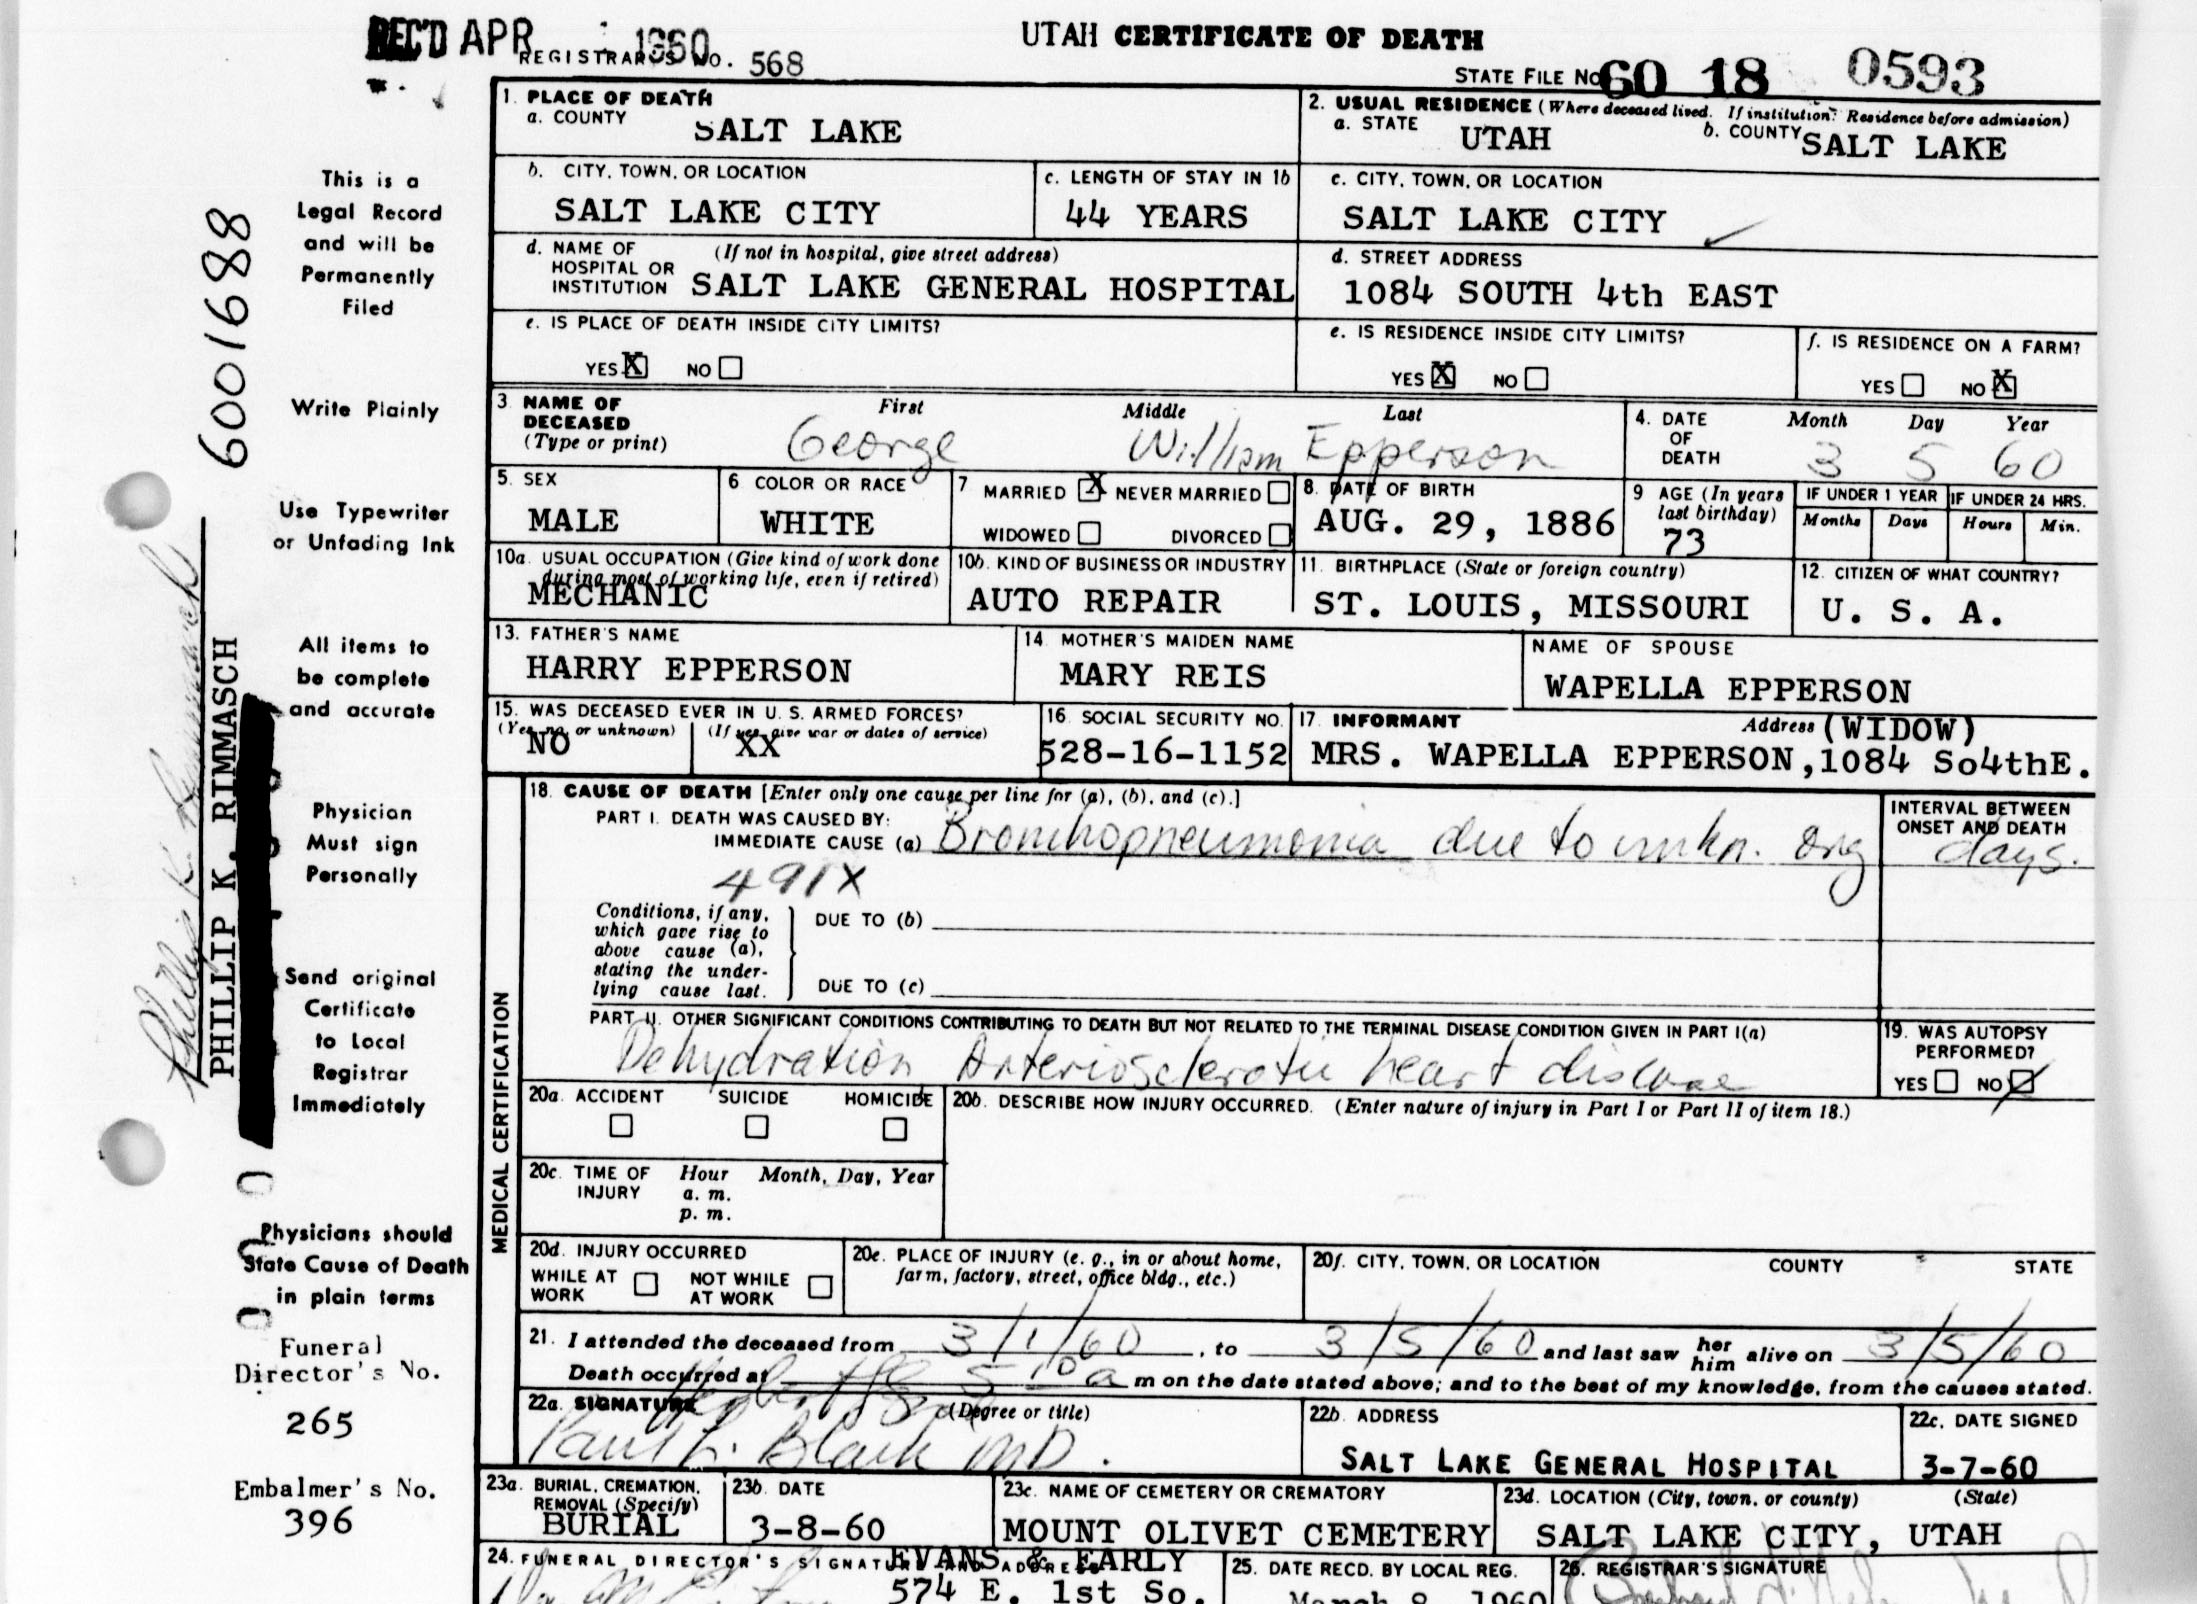 REC'D APR 1960
REGISTRAR'S NO. 568
UTAH CERTIFICATE OF DEATH
STATE FILE NO. 60 18 0593
1. PLACE OF DEATH
a. COUNTY SALT LAKE
2. USUAL RESIDENCE (Where deceased lived. If institution: Residence before admission)
a. STATE UTAH b. COUNTY SALT LAKE
b. CITY, TOWN, OR LOCATION
SALT LAKE CITY
c. LENGTH OF STAY IN 1b
44 YEARS
c. CITY, TOWN, OR LOCATION
SALT LAKE CITY
d. NAME OF HOSPITAL OR INSTITUTION (If not in hospital, give street address)
SALT LAKE GENERAL HOSPITAL
d. STREET ADDRESS
1084 SOUTH 4th EAST
e. IS PLACE OF DEATH INSIDE CITY LIMITS?
YES X NO
e. IS RESIDENCE INSIDE CITY LIMITS?
YES X NO
f. IS RESIDENCE ON A FARM?
YES NO X
3 NAME OF DECEASED (Type or print)
First Middle Last
George William Epperson
4. DATE OF DEATH
Month Day Year
3 5 60
5. SEX
MALE
6 COLOR OR RACE
WHITE
7 MARRIED X NEVER MARRIED
WIDOWED DIVORCED
8. DATE OF BIRTH
AUG. 29, 1886
9 AGE (In years last birthday)
73
IF UNDER 1 YEAR
Months Days
IF UNDER 24 HRS.
Hours Min.
10a. USUAL OCCUPATION (Give kind of work done during most of working life, even if retired)
MECHANIC
10b. KIND OF BUSINESS OR INDUSTRY
AUTO REPAIR
11. BIRTHPLACE (State or foreign country)
ST. LOUIS, MISSOURI
12. CITIZEN OF WHAT COUNTRY?
U. S. A.
13. FATHER'S NAME
HARRY EPPERSON
14 MOTHER'S MAIDEN NAME
MARY REIS
NAME OF SPOUSE
WAPELLA EPPERSON
15. WAS DECEASED EVER IN U. S. ARMED FORCES?
(Yes, no, or unknown) (If yes, give war or dates of service)
NO XX
16. SOCIAL SECURITY NO.
528-16-1152
17 INFORMANT Address (WIDOW)
MRS. WAPELLA EPPERSON,1084 So4thE.
MEDICAL CERTIFICATION
18. CAUSE OF DEATH [Enter only one cause per line for (a), (b), and (c).]
PART I. DEATH WAS CAUSED BY:
IMMEDIATE CAUSE (a) Bronchopneumonia due to unkn. org
INTERVAL BETWEEN ONSET AND DEATH
days.
491X
Conditions, if any,
which gave rise to
above cause (a),
stating the under-
lying cause last.
DUE TO (b)
DUE TO (c)
PART II. OTHER SIGNIFICANT CONDITIONS CONTRIBUTING TO DEATH BUT NOT RELATED TO THE TERMINAL DISEASE CONDITION GIVEN IN PART I(a)
Dehydration Arteriosclerotic heart disease
19. WAS AUTOPSY PERFORMED?
YES NO
20a. ACCIDENT SUICIDE HOMICIDE
20b. DESCRIBE HOW INJURY OCCURRED. (Enter nature of injury in Part I or Part II of item 18.)
20c. TIME OF INJURY
Hour Month, Day, Year
a. m.
p. m.
20d. INJURY OCCURRED
WHILE AT WORK NOT WHILE AT WORK
20e. PLACE OF INJURY (e. g., in or about home, farm, factory, street, office bldg., etc.)
20f. CITY, TOWN, OR LOCATION COUNTY STATE
21. I attended the deceased from 3/1/60, to 3/5/60 and last saw her him alive on 3/5/60
Death occurred at 5 10 a m on the date stated above; and to the best of my knowledge, from the causes stated.
22a. SIGNATURE (Degree or title)
Paul L. Black MD.
22b. ADDRESS
SALT LAKE GENERAL HOSPITAL
22c. DATE SIGNED
3-7-60
23a. BURIAL, CREMATION, REMOVAL (Specify)
BURIAL
23b. DATE
3-8-60
23c. NAME OF CEMETERY OR CREMATORY
MOUNT OLIVET CEMETERY
23d. LOCATION (City, town, or county) (State)
SALT LAKE CITY, UTAH
24. FUNERAL DIRECTOR'S SIGNATURE AND ADDRESS
EVANS & EARLY
574 E. 1st So.
25. DATE RECD. BY LOCAL REG.
March 8, 1960
26. REGISTRAR'S SIGNATURE
This is a
Legal Record
and will be
Permanently
Filed
Write Plainly
Use Typewriter
or Unfading Ink
All items to
be complete
and accurate
Physician
Must sign
Personally
Send original
Certificate
to Local
Registrar
Immediately
Physicians should
State Cause of Death
in plain terms
Funeral
Director's No.
265
Embalmer's No.
396
6001688
PHILLIP K. RIMMASCH
Phillip K. Rimmasch